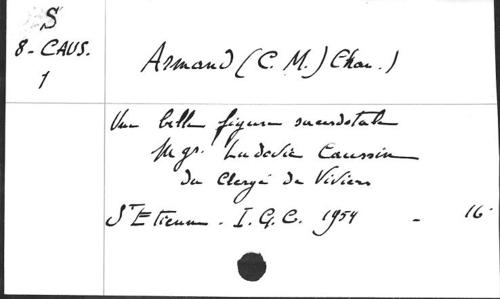 S
8-CAUS.
1
Armand (C. M.) Chan.)
Une belle figure sacerdotale
Mgr. Ludovic Caussin
du Clergé de Viviers
St Etienne. I.G.C. 1954 - 16